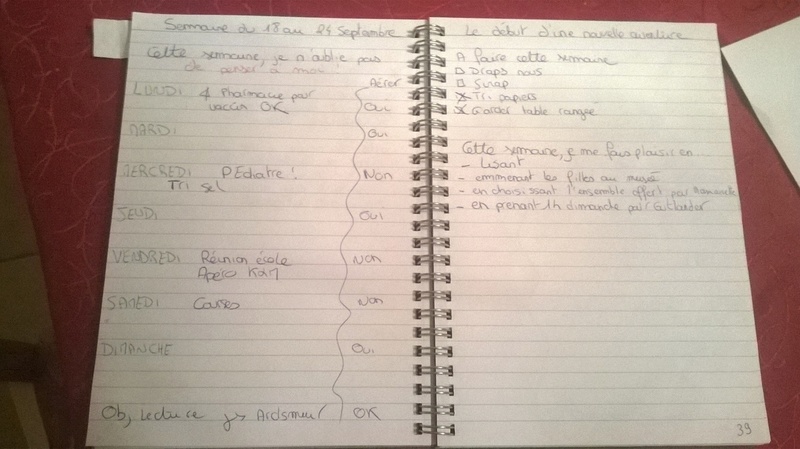 Semaine du 18 au 24 Septembre
Cette semaine, je n'oublie pas
de penser à moi!
Aérer
LUNDI Pharmacie pour Oui
vaccin OK
MARDI Oui
MERCREDI PEdiatre! Non
Tri sel
JEUDI OUI
VENDREDI Réunion école Non
Apéro
SAMEDI Courses Non
DIMANCHE Oui
Obj Lecture OK
Le début d'une nouvelle aventure
A faire cette semaine
Draps nous
Swap
Tri papiers
Garder table rangée
Cette semaine, je me fais plaisir en...
- Lisant
- emmenant les filles au musée
- en choisissant l'ensemble offert par
- en prenant 1h dimanche pour Outlander
39